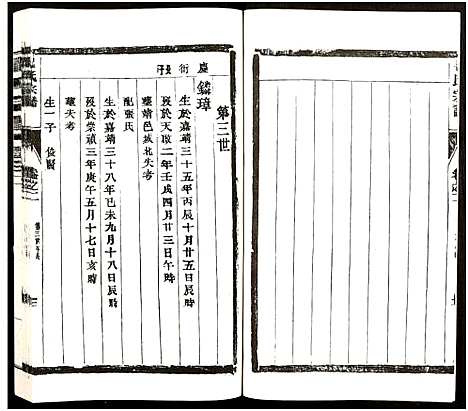 第三世
慶衍長子
鏻璋
生於嘉靖三十五年丙辰十月廿五日辰時
歿於天啟二年壬戌四月廿三日午時
塟靖邑城北失考
配張氏
生於嘉靖三十八年己未九月十八日辰時
歿於崇禎三年庚午五月十七日亥時
塟失考
生一子
氏宗譜
卷之